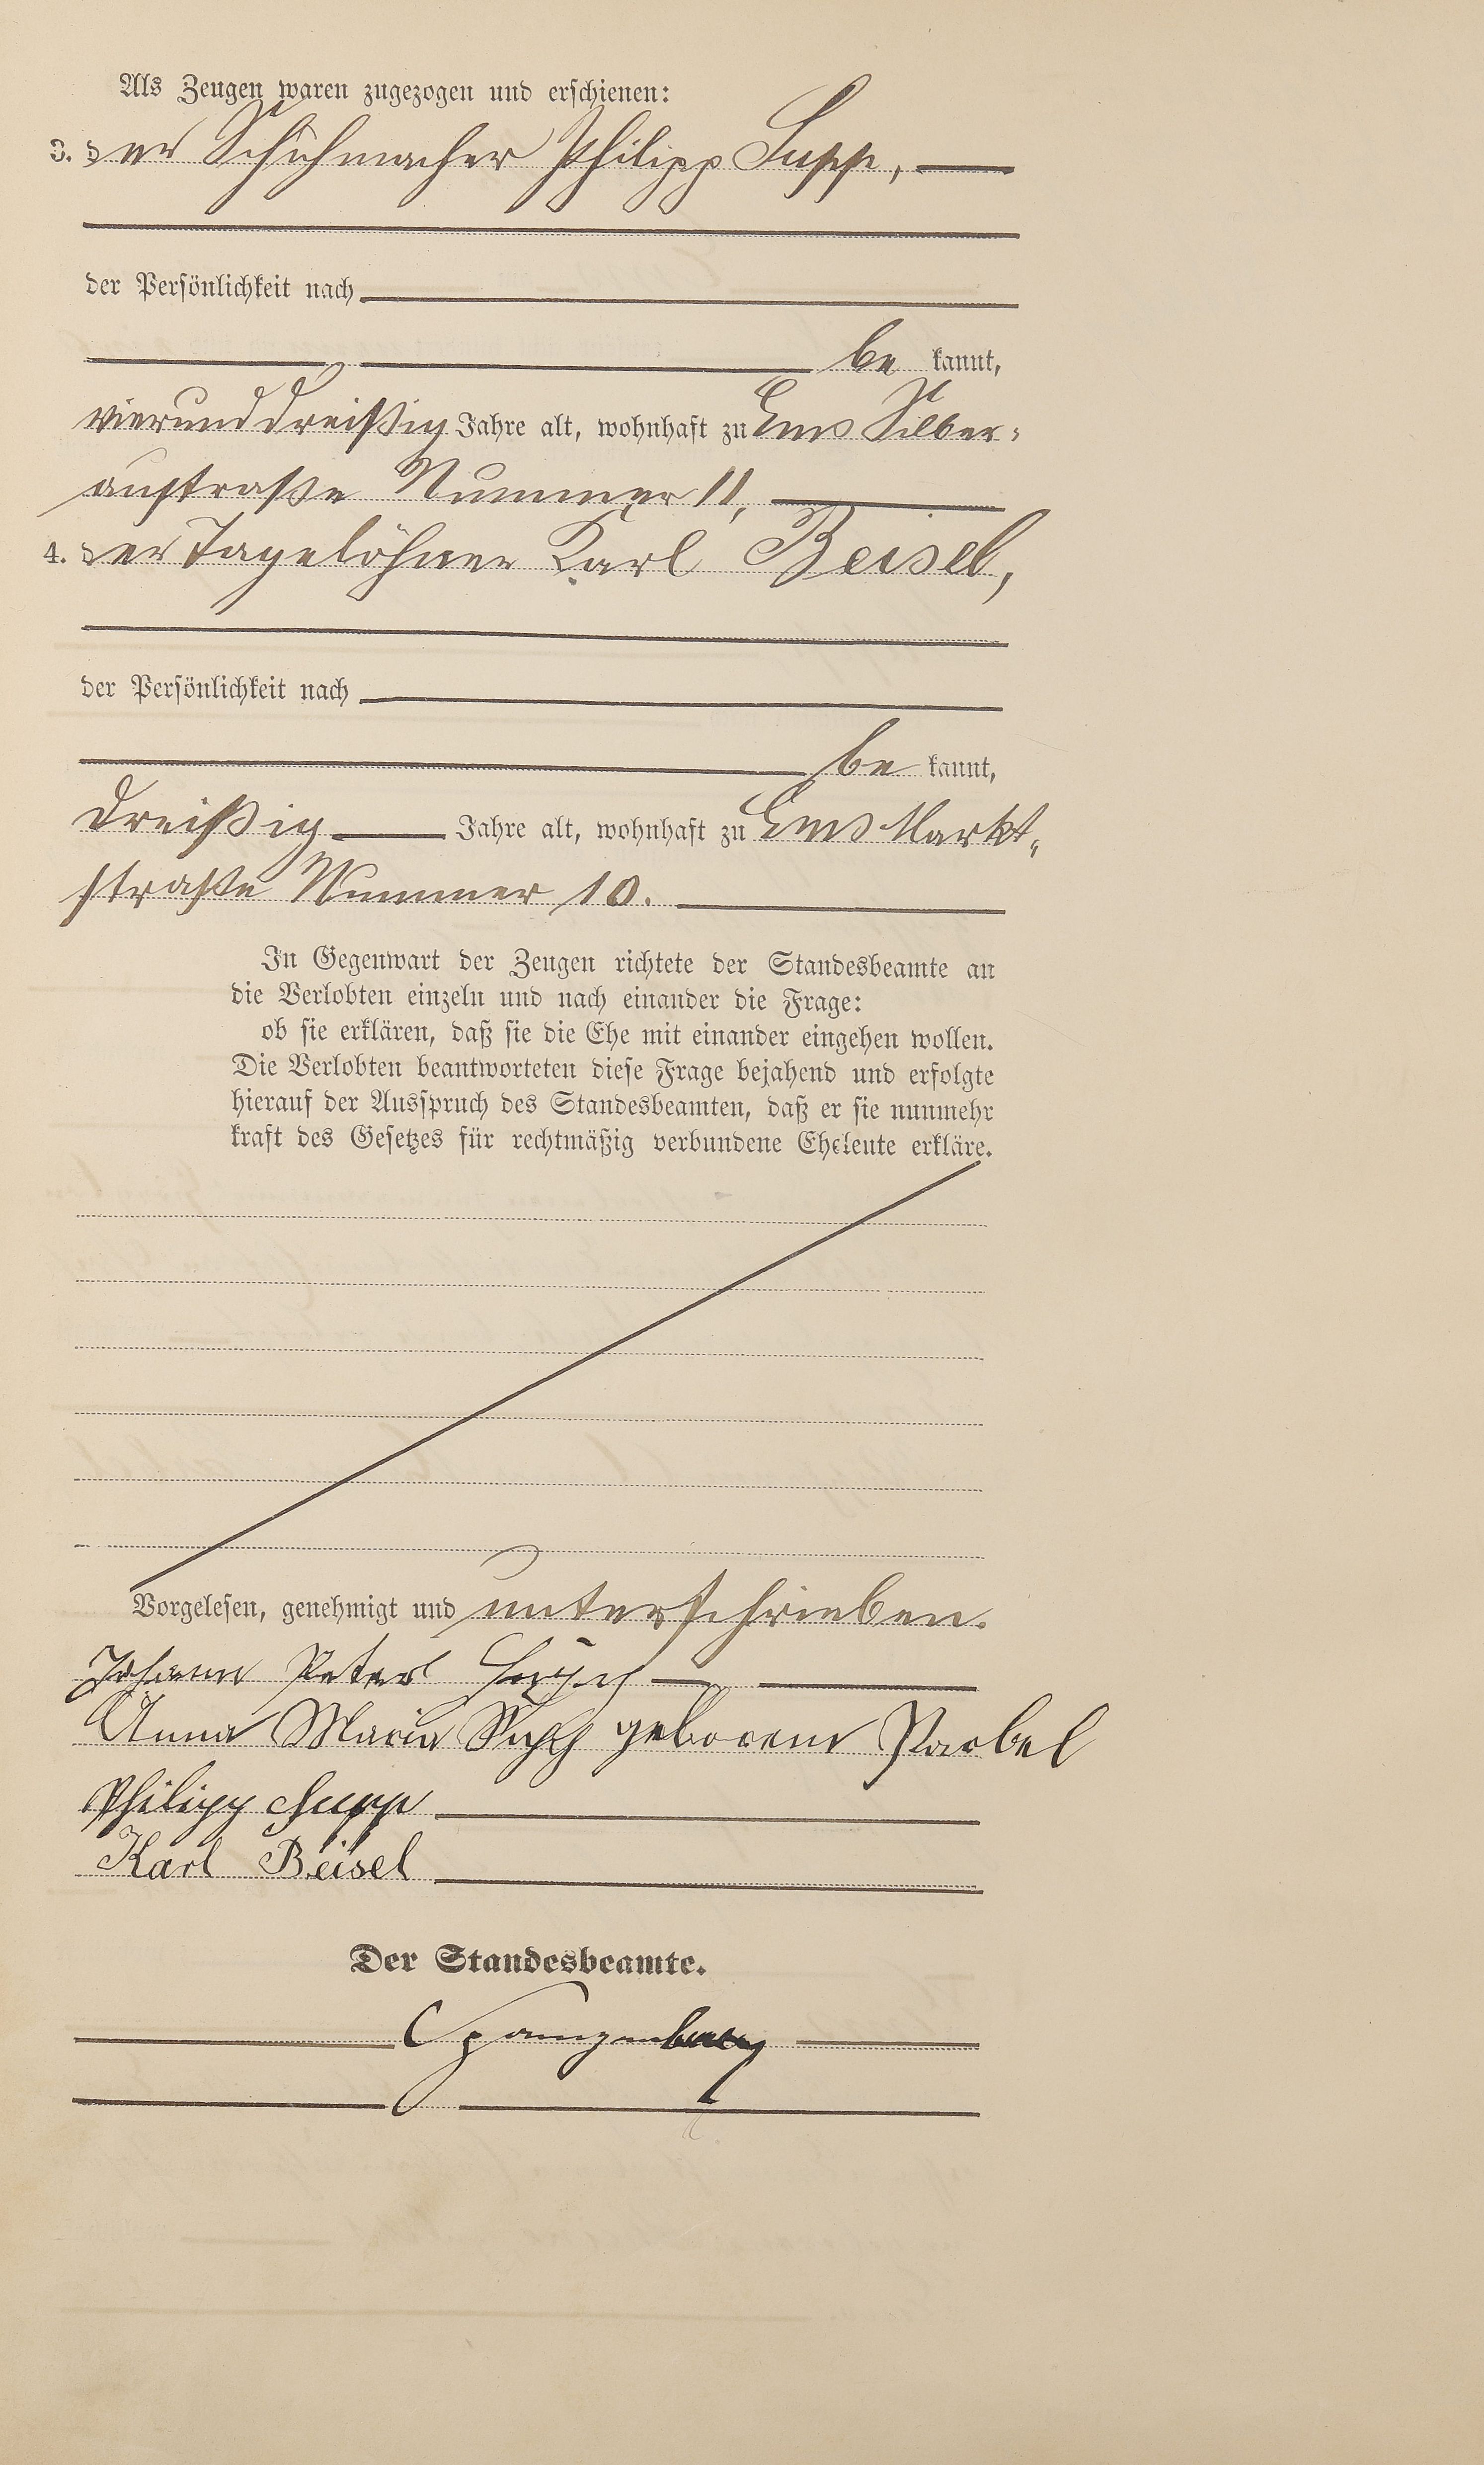 Als Zeugen waren zugezogen und erschienen:
3. der Schuhmacher Philipp Supp,
der Persönlichkeit nach
be kannt,
vierunddreißig Jahre alt, wohnhaft zu Ems Silber-
austraße Nummer 11,
4. der Tagelöhner Karl Beisel,
der Persönlichkeit nach
be kannt,
dreißig Jahre alt, wohnhaft zu Ems Markt-
straße Nummer 10.
In Gegenwart der Zeugen richtete der Standesbeamte an
die Verlobten einzeln und nach einander die Frage:
ob sie erklären, daß sie die Ehe mit einander eingehen wollen.
Die Verlobten beantworteten diese Frage bejahend und erfolgte
hierauf der Ausspruch des Standesbeamten, daß er sie nunmehr
kraft des Gesetzes für rechtmäßig verbundene Eheleute erkläre.
Vorgelesen, genehmigt und unterschrieben.
Johann Peter
Anna Maria geborene Parbel
Philipp Supp
Karl Beisel
Der Standesbeamte.
Spangenberg